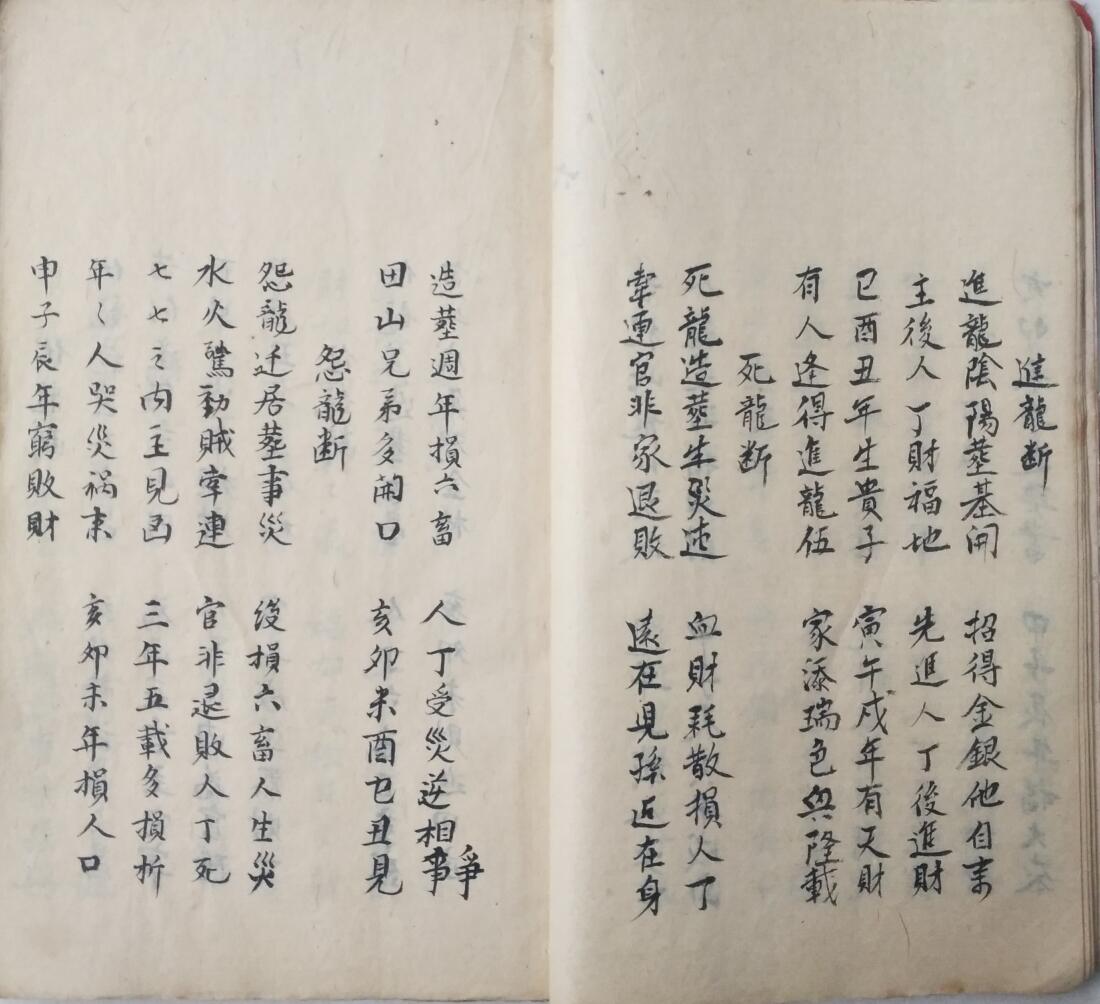 進龍断
進龍陰陽塟基開 招得金銀他自来
主後人丁財福地 先進人丁後進財
巳酉丑年生貴子 寅午戍年有天財
有人逢得進龍伍 家添瑞色興隆載
死龍断
死龍造塟生災迍 血財耗散損人丁
牽連官非家退敗 遠在児孫近在身
造塟週年損六畜 人丁受災逆相爭事
田山兄弟多閗口 亥卯未酉巳丑見
怨龍断
怨龍迁居塟事災 後損六畜人生災
水火驚動賊牽連 官非退敗人丁死
七七之内主見凶 三年五載多損折
年〻人哭災祸来 亥卯未年損人口
申子辰年窮敗財